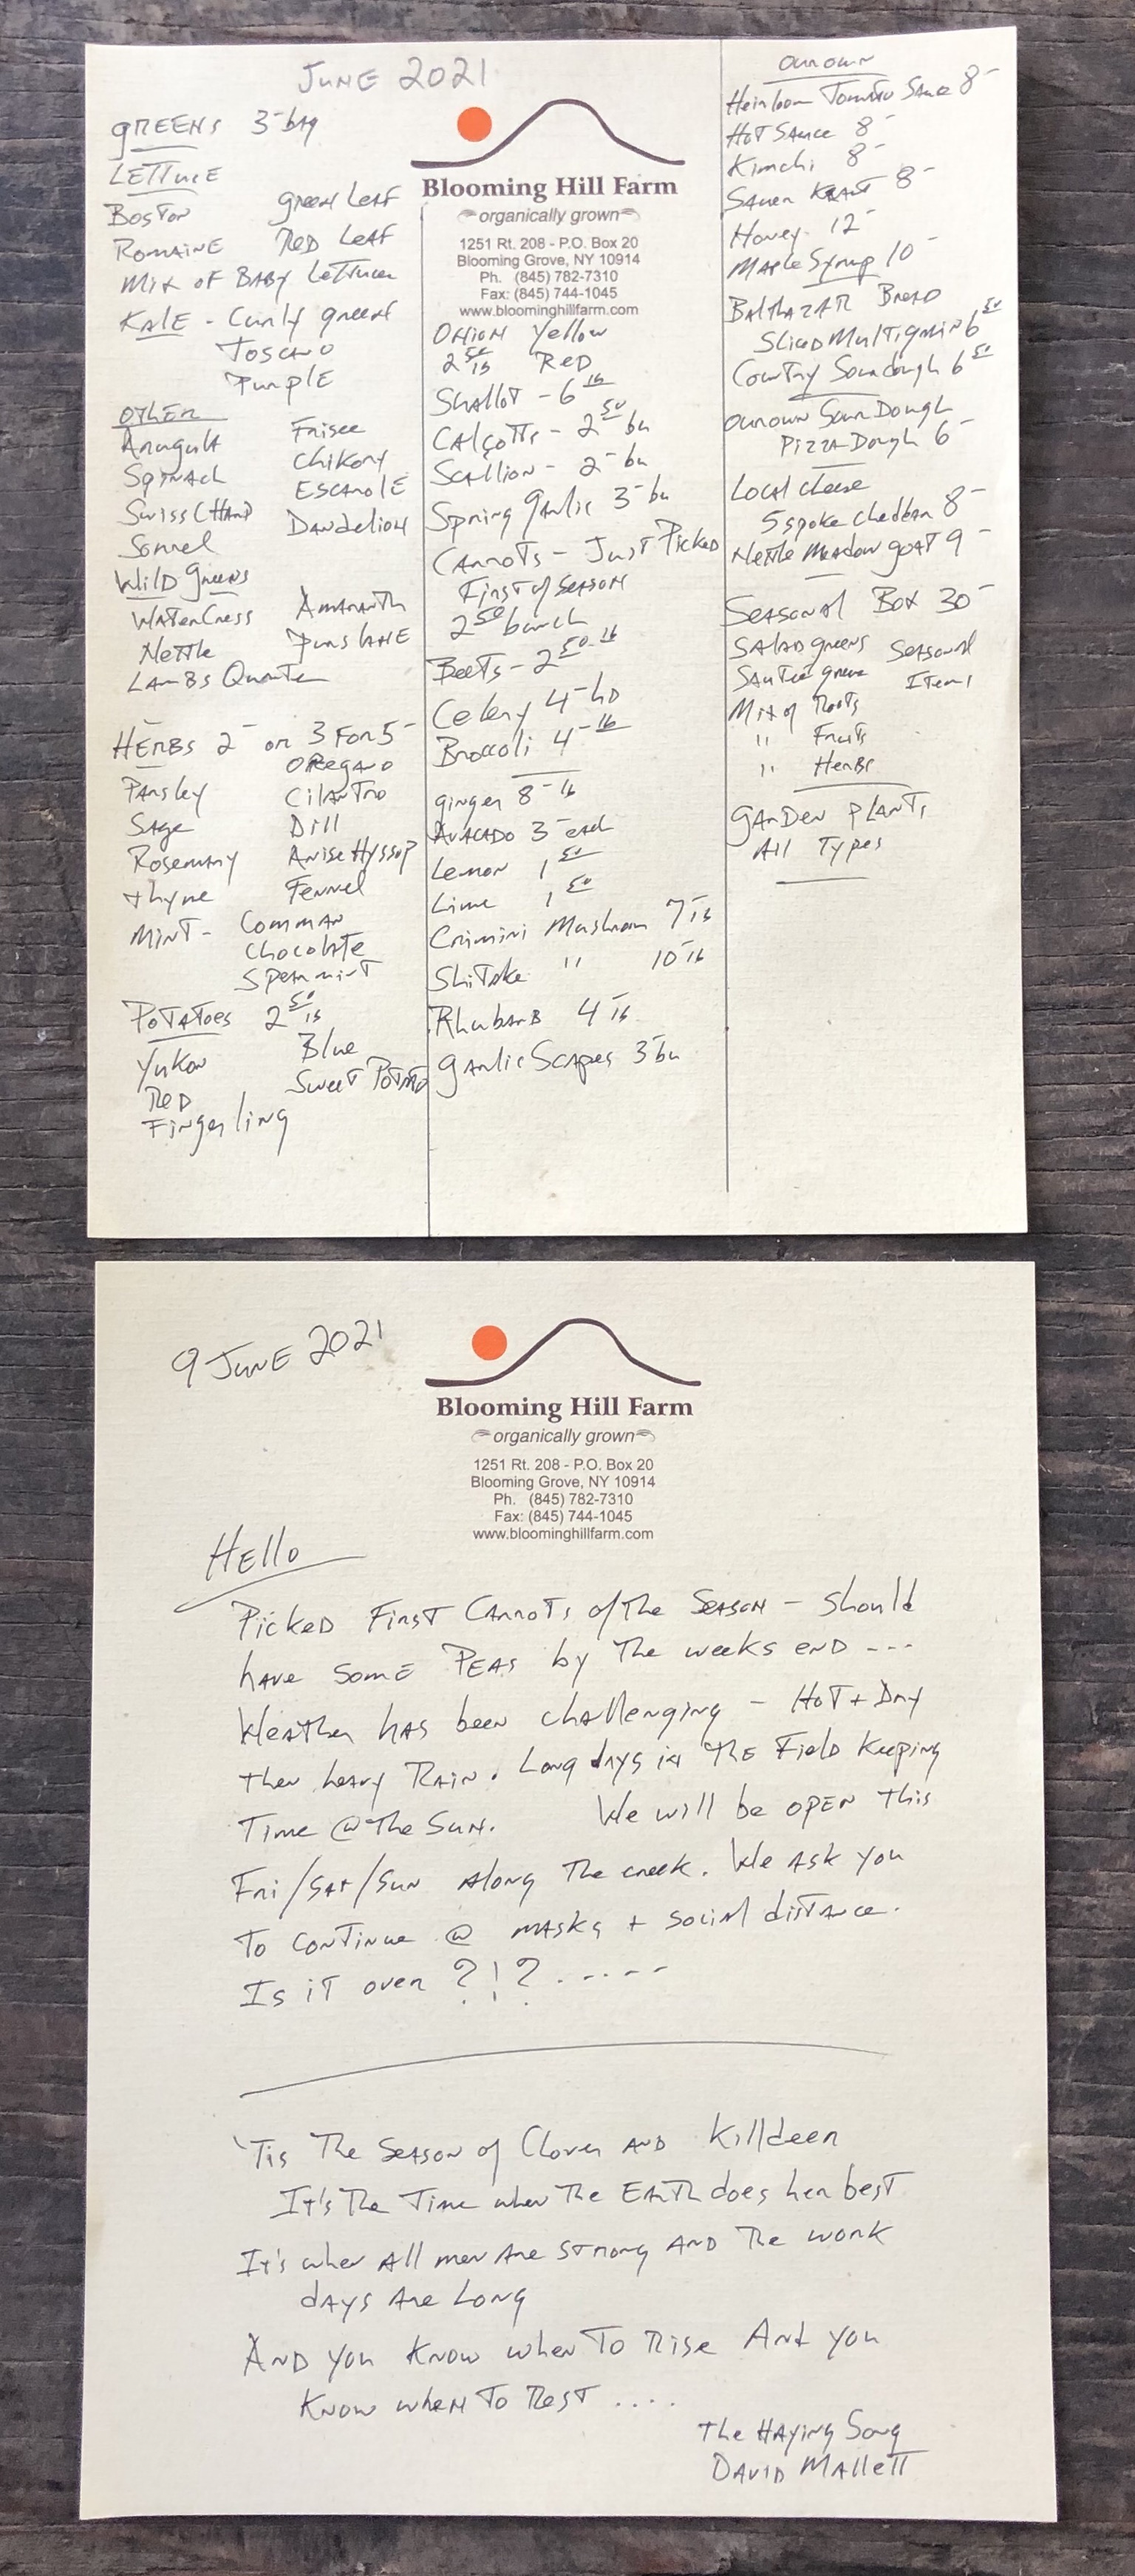 JUNE 2021
GREENS 3- bag
LETTUCE
BOSTON
GREEN LEAF
ROMAINE
RED LEAF
MIX OF BABY LETTUCE
KALE - Curly green
TOSCANO
PURPLE
OTHER
Arugula
Frisee
SPINACH
Chikory
SWISS CHARD
ESCAROLE
Sorrel
Dandelion
WILD greens
WATERCRESS
AMARANTH
Nettle
PURSLANE
LAMBS Quarter
HERBS 2- or 3 FOR 5-
OREGANO
PARSLEY
CILANTRO
SAGE
Dill
Rosemary
Anise Hyssop
thyme
Fennel
MINT - COMMON
Chocolate
Spearmint
POTATOES 2 50 lb
Yukon
Blue
RED
SWEET POTATO
Fingerling
Blooming Hill Farm
organically grown
1251 Rt. 208 - P.O. Box 20
Blooming Grove, NY 10914
Ph. (845) 782-7310
Fax: (845) 744-1045
www.bloominghillfarm.com
ONION Yellow
2 50 lb RED
SHALLOT - 6 lb
CALÇOTS - 2 50 bu
SCALLION - 2- bu
Spring garlic 3- bu
CARROTS - JUST PICKED
FIRST of SEASON
2 50 bunch
BEETS - 2 50 lb
Celery 4- HD
Broccoli 4- lb
ginger 8- lb
AVACADO 3- each
Lemon 1 50
Lime 1 50
Crimini Mushroom 7 lb
Shitake " 10 lb
RhubarB 4 lb
garlic Scapes 3 bu
ourown
Heirloom Tomato Sauce 8-
HOT SAUCE 8-
Kimchi 8-
Sauer KRAUT 8-
Honey 12-
Maple Syrup 10-
BALTHAZAR BREAD
SLICED Multigrain 6 50
Country Sourdough 6 50
ourown Sour Dough
PIZZA Dough 6-
Local cheese
5 spoke cheddar 8-
Nettle Meadow goat 9-
SEASONAL BOX 30-
SALAD greens
SEASONAL
SAUTEE greens
ITEMS
Mix of ROOTS
" FRUITS
" HERBS
GARDEN PLANTS
All Types
9 JUNE 2021
Blooming Hill Farm
organically grown
1251 Rt. 208 - P.O. Box 20
Blooming Grove, NY 10914
Ph. (845) 782-7310
Fax: (845) 744-1045
www.bloominghillfarm.com
HELLO
PICKED FIRST CARROTS of The SEASON - should
have SOME PEAS by The weeks END ---
WEATHER HAS been challenging - HOT + DRY
then heavy RAIN. Long days in THE FIELD keeping
TIME @ THE SUN. We will be OPEN this
Fri/SAT/SUN Along The creek. We ASK you
TO CONTINUE @ MASKS + SOCIAL DISTANCE.
Is iT over ?!? .-----
'Tis THE SEASON of Clover AND Killdeer
It's THE TIME when THE EARTH does her best
It's when All men Are strong AND The work
days Are Long
AND you KNOW when TO RISE And you
KNOW wheN TO REST ....
the HAYING Song
DAVID MALLETT